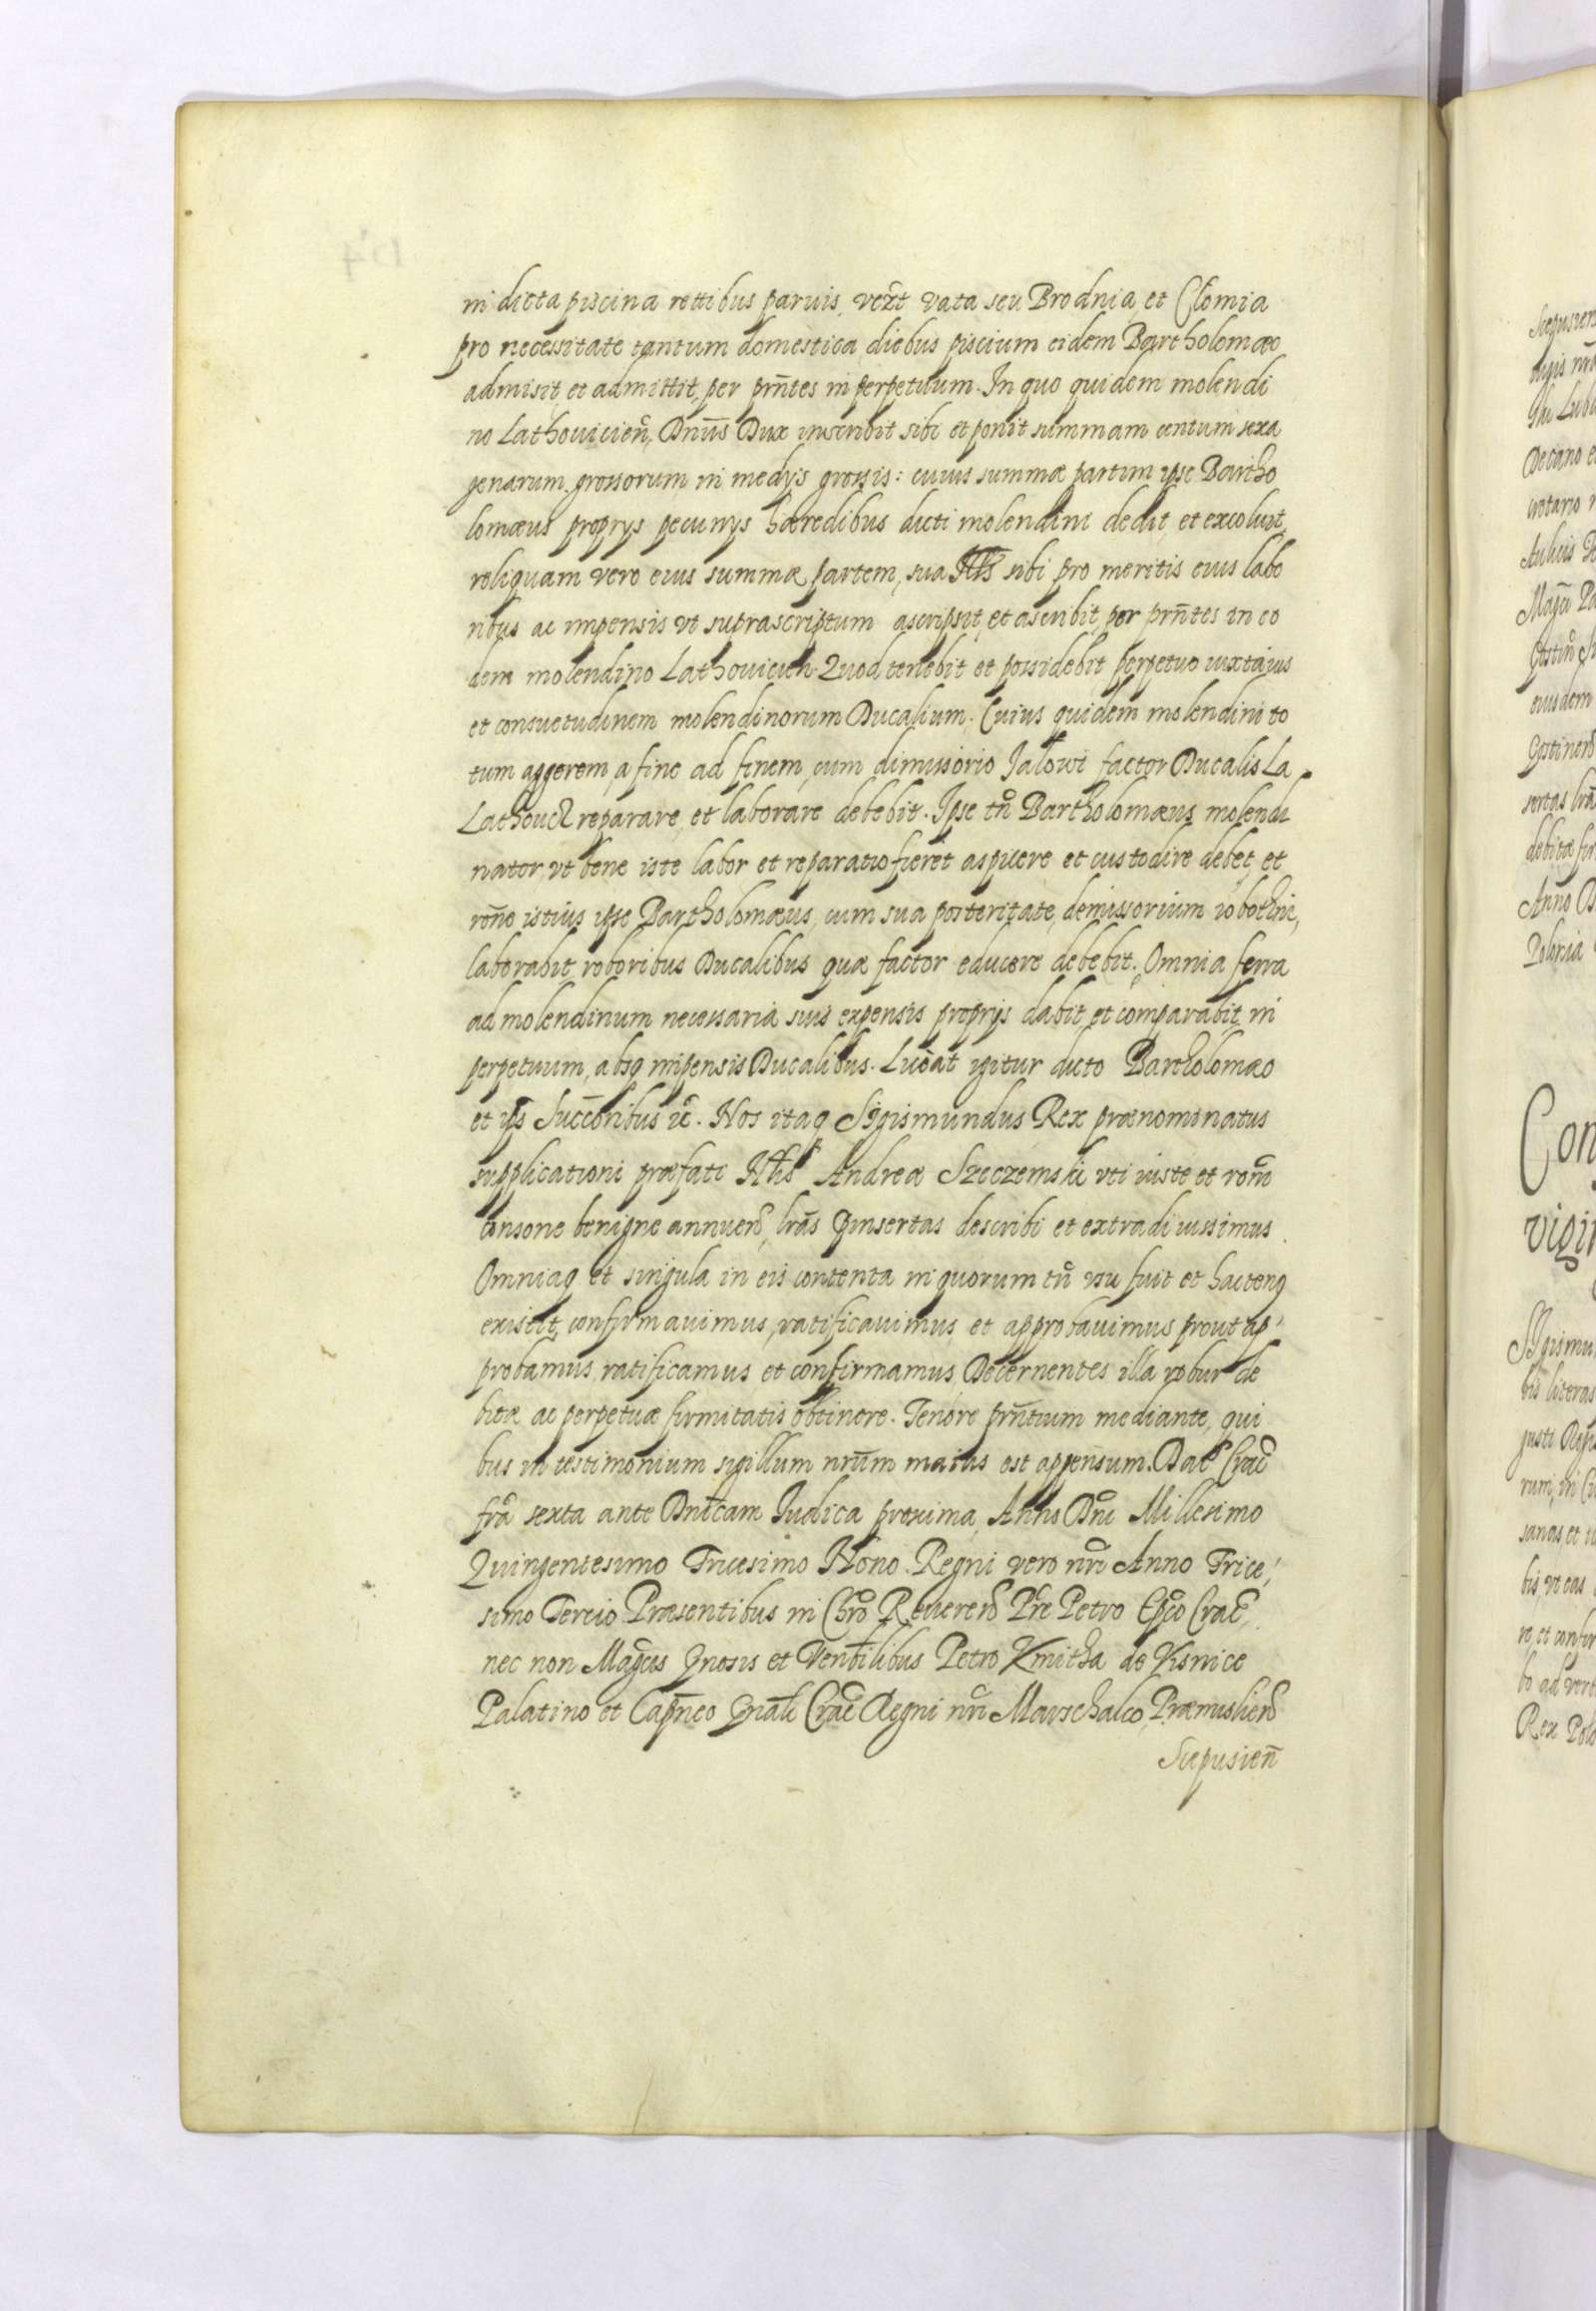 in dicta piscina rettibus paruis, vert vata seu Brodnia et Clomia
pro necessitate tantum domestica diebus piscium eidem Bartholomæo
admisit, et admittit, per pn̄tes in perpetuum. In quo quidem molendi
no Lathouicien̄, Dnūs Dux inscribit sibi et ponit summam centum sexa
genarum grossorum in medys grossis: cuius summæ partim ipse Bartho
lomæus proprys pecunys hæredibus dicti molendini dedit, et excoluit,
reliquam vero eius summæ partem, sua sibi pro meritis eius labo
ribus ac impensis vt suprascriptum ascripsit, et ascribit, per prn̄tes in eo
dem molendino Lathouicien. Quod tenebit et possidebit perpetuo iuxta ius
et consuetudinem molendinorum Ducalium. Cuius quidem molendini to
tum aggerem, a fine ad finem, cum dimissorio Jalowi factor Ducalis La
reparare, et laborare debebit. Ipse tn̄ Bartholomæus molendi
nator, vt bene iste labor et reparatio fieret aspicere et custodire debet, et
ron̄e istius ipse Bartholomæus, cum sua posteritate, demissorium
laborabit, roboribus Ducalibus quæ factor educere debebit. Omnia ferra
ad molendinum necessaria suis expensis proprijs dabit et comparabit in
perpetuum, absq impensis Ducalibus. igitur dicto Bartholomæo
et ip̄s Succ̄oribus ic̄. Nos itaq Sigismundus Rex prænominatus
supplicationi præfati Andreæ Szeczemski vti iuste et ron̄i
consone benigne annuen̄, lrās p̄insertas describi et extradi iussimus.
Omniaq et singula in eis contenta in quorum tn̄ vsu fuit et hactenq
existit, confirmauimus, ratificauimus, et approbauimus prout ap
probamus, ratificamus et confirmamus, Decernentes illa robur de
bitæ ac perpetuæ firmitatis obtinere. Tenore prn̄tium mediante, qui
bus in testimonium sigillum nrūm maius est appensum. Dat̄ Crac̄
frā sexta ante Dnīcam Iudica proxima, Anno Dnī Millesimo
Quingentesimo Tricesimo Nono. Regni vero nrī Anno Trice
simo Tercio Præsentibus in Chrō Reueren̄ Prē Petro Epc̄o Crac̄,
nec non Magc̄is Gnosis et Venbilibus Petro Kmitha de Visnice
Palatino et Capn̄eo Gnāli Crac̄ Regni nrī Marschalco, Præmislien̄
Scepusien̄